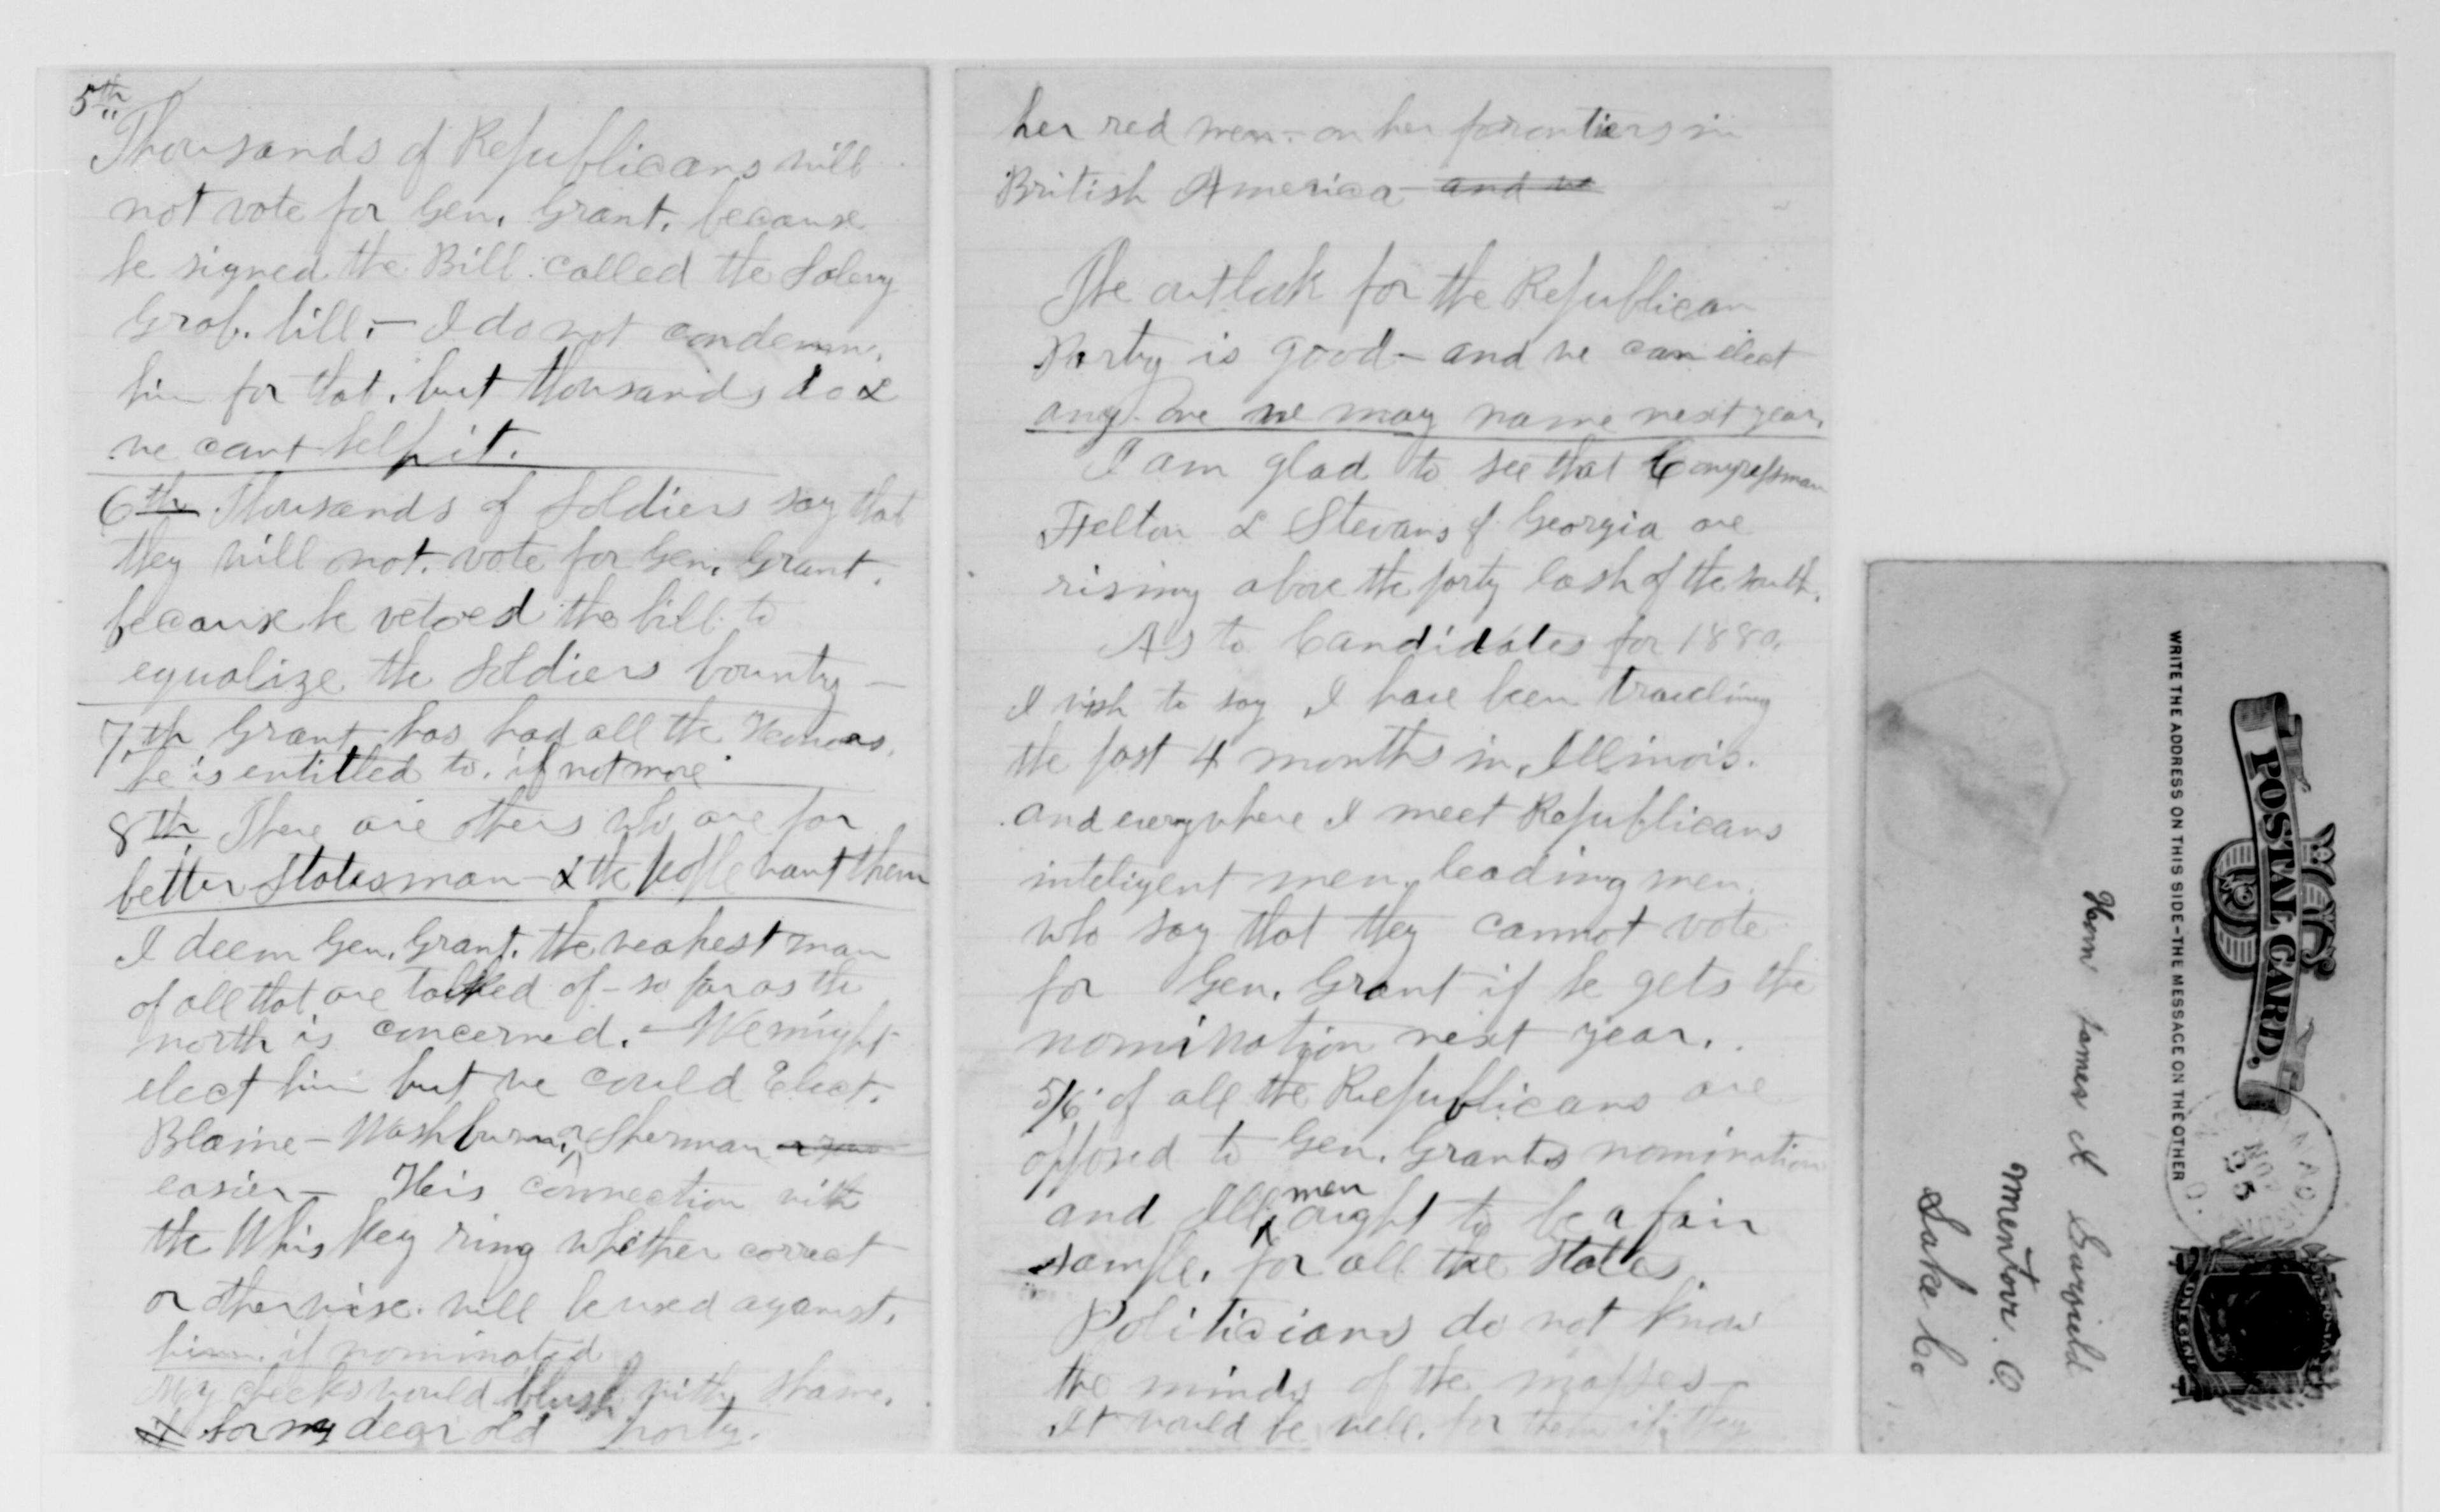 5th
Thousands of Republicans will
not vote for Gen. Grant, because
he signed the Bill called the Salery
Grab. bill. — I do not condemn
him for that, but thousands do &
we cant help it.
6th Thousands of Soldiers say that
they will not vote for Gen. Grant.
because he vetoed the bill to
equalize the Soldiers bounty —
7th Grant has had all the Honors
he is entitled to. if not more
8th There are others who are far
better Statesman — & the people want them
I deem Gen. Grant. the weakest man
of all that are talked of — so far as the
north is concerned. — We might
elect him but we could Elect.
Blaine — Washburn, or Sherman
easier — His connection with
the Whiskey ring whether correct
or otherwise. will be used against.
him. if nominated
My cheeks would blush with shame.
for my dear old party.
her red men — on her frontiers in
British America — and we
The outlook for the Republican
Party is good — and we can elect
any one we may name next year.
I am glad to see that Congressman
Felton & Stevans of Georgia are
rising above the party lash of the South.
As to Candidates for 1880.
I wish to say I have been traveling
the past 4 months in Illinois.
and everywhere I meet Republicans
inteligent men, leading men.
who say that they cannot vote
for Gen. Grant if he gets the
nomination next year.
5/6 of all the Republicans are
opposed to Gen. Grants nomination
and Ill. men ought to be a fair
sample. for all the States.
Politicians do not know
the minds of the masses —
It would be well. for them if they
WRITE THE ADDRESS ON THIS SIDE - THE MESSAGE ON THE OTHER
POSTAL CARD.
NOV
25
U.S. POSTAGE
ONE CENT
Hon James A Garfield
Mentor O.
Lake Co